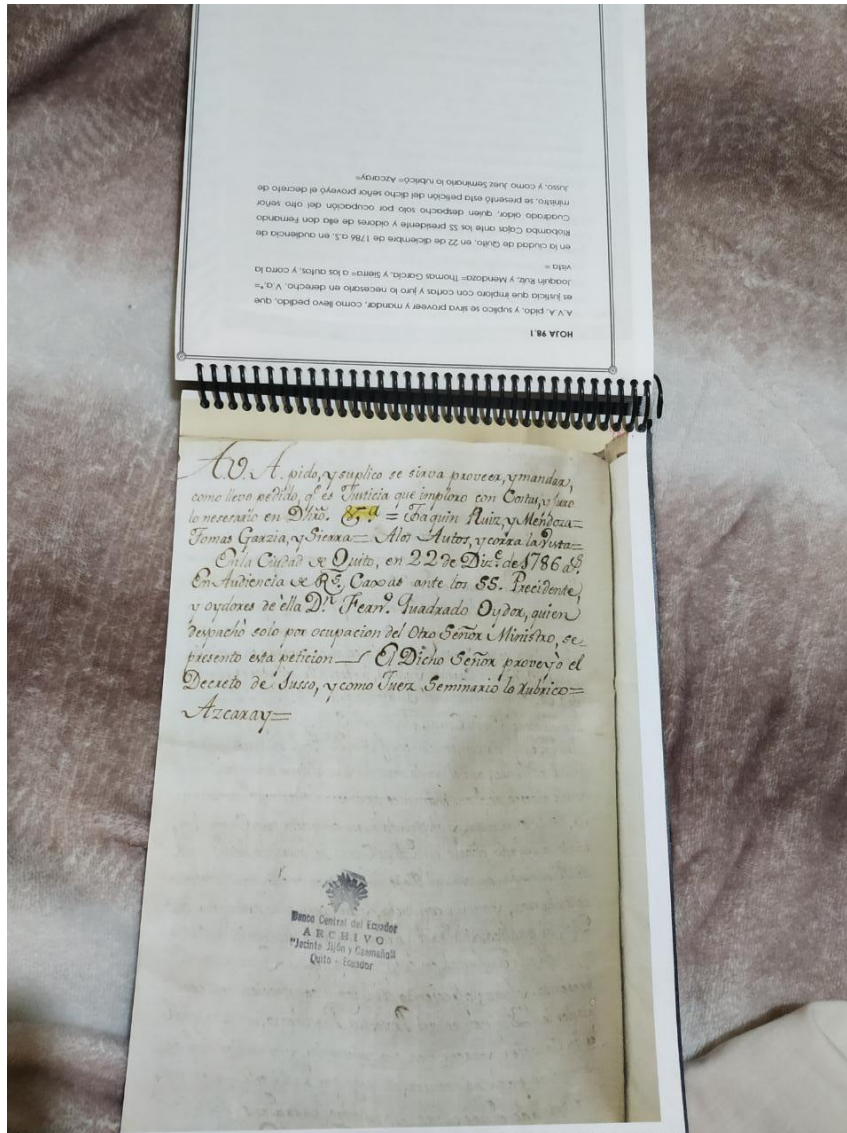 HOJA 98.1
A.V.A. pido, y suplico se sirva proveer y mandar, como llevo pedido, que
es justicia que imploro con cortas y juro lo necesario en derecho, V.a.*=
Joaquín Ruiz, y Mendoza= Thomas García, y Sierra= a los autos, y corra la
vista =
en la ciudad de Quito, en 22 de diciembre de 1786 a.S. en audiencia de
Riobamba Cajas ante los SS presidente y oidores de ella don Fernando
Cuadrado oidor, quién despacho solo por ocupación del otro señor
ministro, se presentó esta petición del dicho señor proveyó el decreto de
Jusso, y como Juez Seminario lo rubricó= Azcaray=
A.V.A. pido, y suplico se sirva proveer, y mandar,
como llevo pedido, q.e es Justicia que imploro con Costas, y juro
lo nesesario en Dhrô. = Joaquin Ruiz, y Mendoza=
Tomas Garzia, y Sierra= A los Autos, y corra la Vista=
En la Ciudad de Quito, en 22 de Diz.e de 1786 a.s
En Audiencia de R.s Caxas ante los SS. Precidente,
y oydores de ella D.n Fern.o Quadrado Oydor, quien
despachò solo por ocupacion del Otro Señor Ministro, se
presento esta peticion El Dicho Señor proveyò el
Decreto de Susso, y como Juez Seminario lo rubrico=
Azcaray=
Banco Central del Ecuador
ARCHIVO
"Jacinto Jijón y Caamaño"
Quito - Ecuador